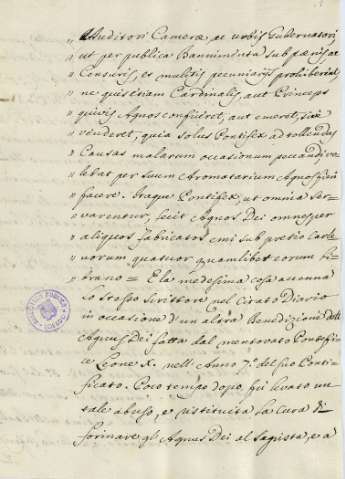 „ Auditori Cameræ, ac urbis Gubernatori
„ ut per publica Bannimenta sub pœnis et
„ Censuris, et mulctis pecuniarijs prohiberet
„ ne quis etiam Cardinalis, aut Princeps
„ quivis Agnos conficeret, aut emeret, sive
„ venderet, quia solus Pontifex ad tollendas
„ Causas malarum occasionum peccandi, vo=
„ lebat per suum Aromatarium Agnos
„ facere. Itaque Pontifex, ut omnia ser=
„ varentur, fecit Agnos Dei omnes per
„ aliquos fabricatos emi sub pretio Carle=
„ norum quatuor quamlibet eorum li=
„ bram = E la medesima cosa accenna
lo stesso Scrittore nel citato Diario
in occasione d'un altra Benedizione
Agnus Dei fatta dal mentovato Pontefi=
ce Leone X. nell' Anno 7.º del suo Ponti=
ficato. Poco tempo dopo fu levato un
tale abuso, e restituita la cura di
formare gl'Agnus Dei al Sagrista, e a